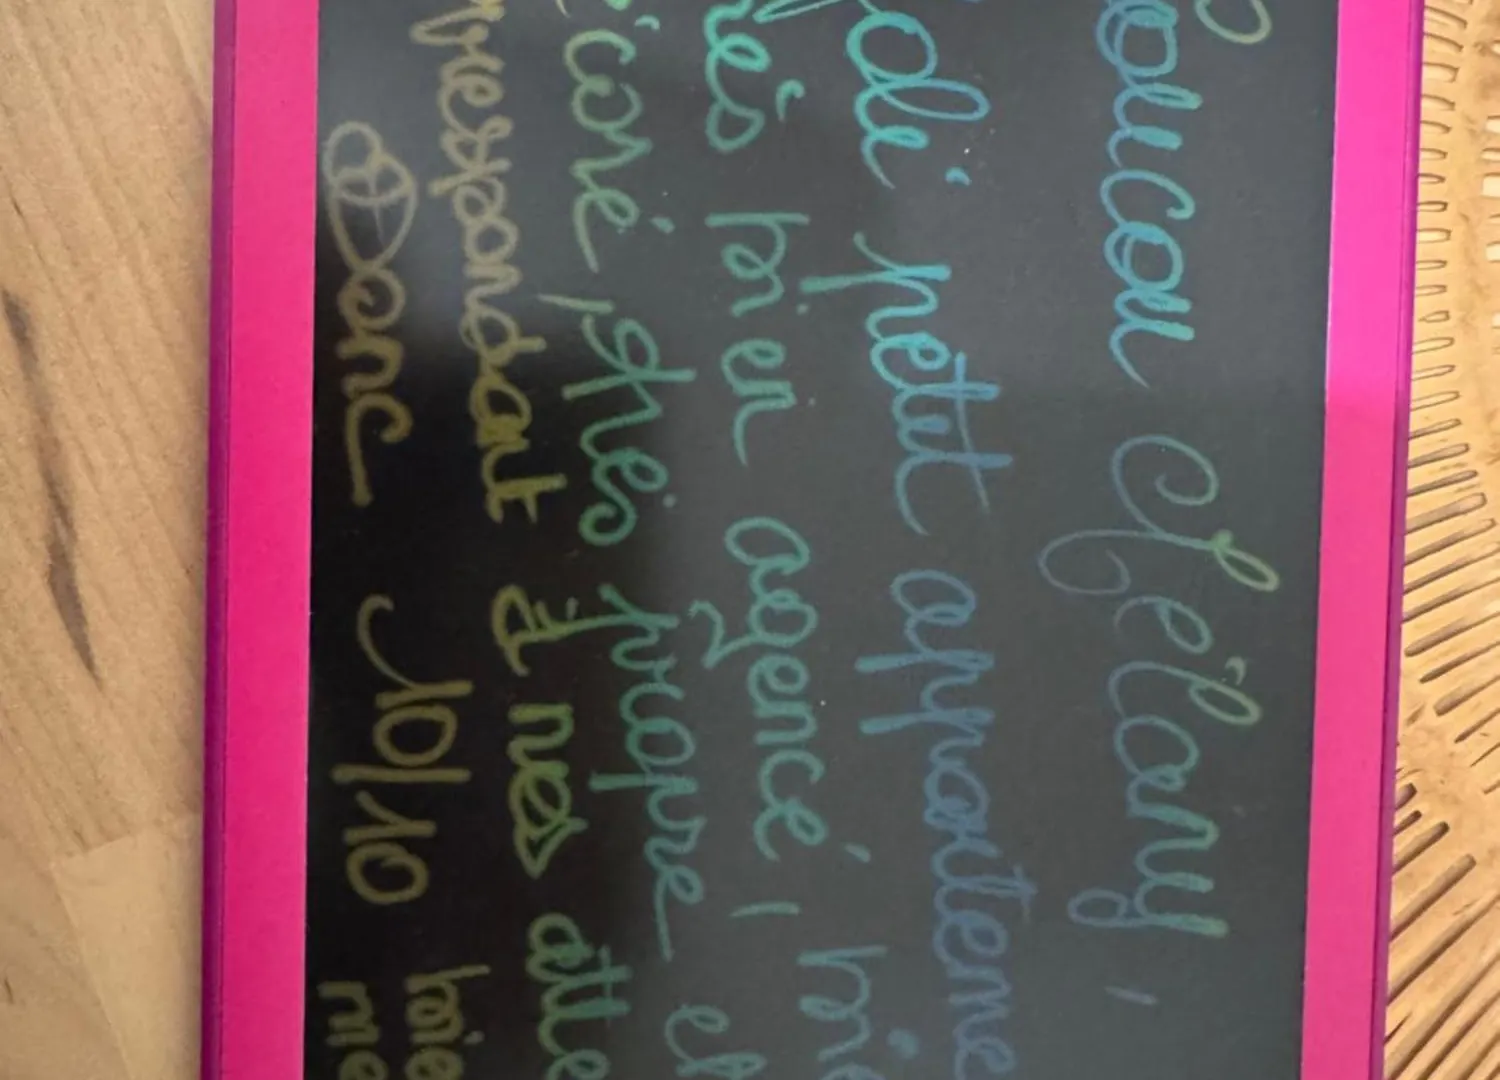 Coucou Mélany,
joli petit apparteme
très bien agencé, bie
décoré, très propre et
correspondant à nos atte
Donc 10/10 bie
me